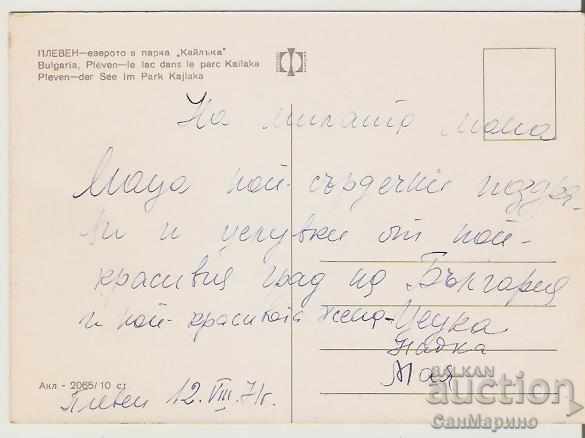 ПЛЕВЕН—езерото в парка „Кайлъка"
Bulgaria, Pleven—le lac dans le parc Kailaka
Pleven—der See im Park Kajlaka
На милата мама
най-сърдечни поздра-
ви и целувки от най-
красивия град на България
и най-красивата жена-Цецка
Надка
Мая
Акл - 2065/10 ст
Плевен 12.VIII.71г.
BALKAN
auction
СанМарино